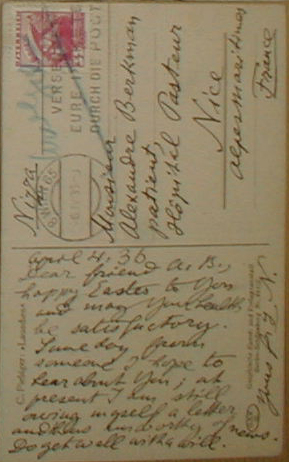 ÖSTERREICH
VERGE
EURE
DURCH DIE POST
WIEN 65
Nizza
Monsieur
Alexandre Berkman
patient,
Hôpital Pasteur
Nice
Alpes maritimes
France
April 4. 36
Dear friend A. B.,
happy Easter to you
and may your health
be satisfactory.
Some day from
someone I hope to
hear about you; at
present I am still
owing myself a letter
and thus unworthy of news.
Do get well with a will.
Yours
N.